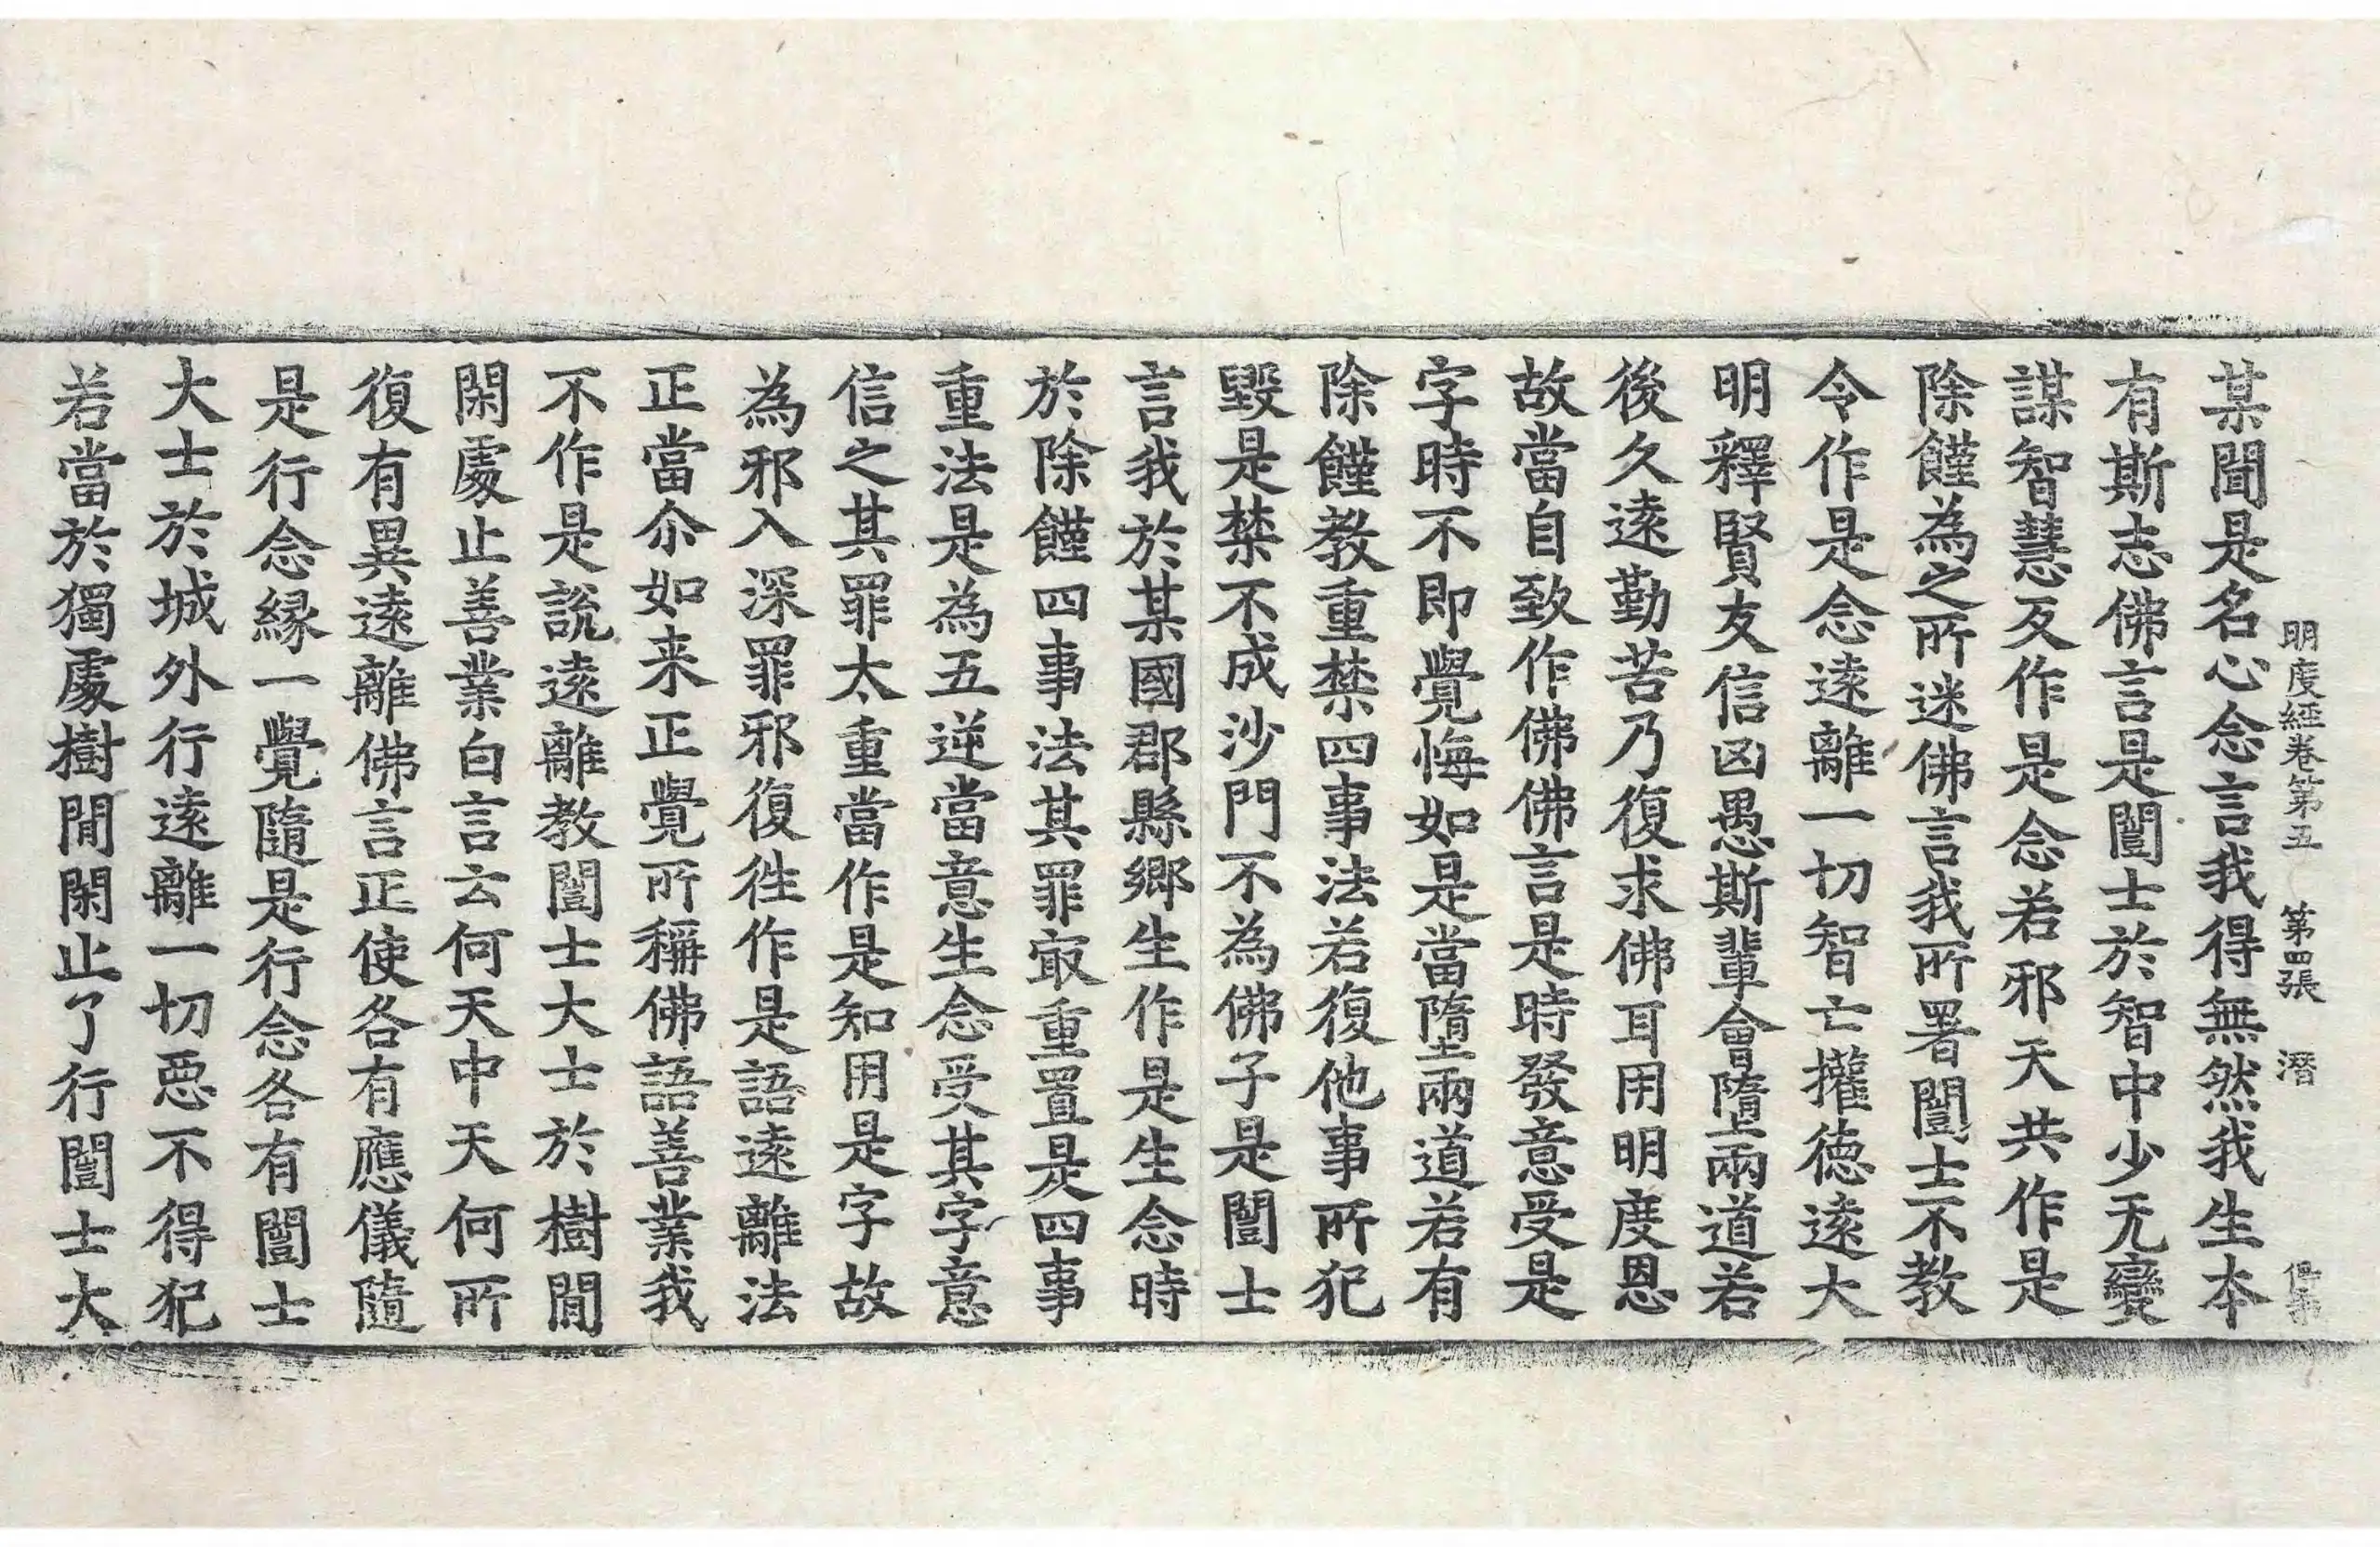 明度經卷第五 第四張 潛
某聞是名心念言我得無然我生本
有斯志佛言是闓士於智中少无變
謀智慧反作是念若邪天共作是
除饉為之所迷佛言我所署闓士不教
令作是念遠離一切智亡攉德遠大
明釋賢友信凶愚斯輩會墮兩道若
後久遠勤苦乃復求佛耳用明度恩
故當自致作佛佛言是時發意受是
字時不即覺悔如是當墮兩道若有
除饉教重禁四事法若復他事所犯
毀是禁不成沙門不為佛子是闓士
言我於某國郡縣鄉生作是生念時
於除饉四事法其罪㝡重置是四事
重法是為五逆當意生念受其字意
信之其罪太重當作是知用是字故
為邪入深罪邪復徃作是語遠離法
正當尒如来正覺所稱佛語善業我
不作是說遠離教闓士大士於樹間
閑處止善業白言云何天中天何所
復有異遠離佛言正使各有應儀隨
是行念縁一覺隨是行念各有闓士
大士於城外行遠離一切惡不得犯
若當於獨處樹間閑止了行闓士大